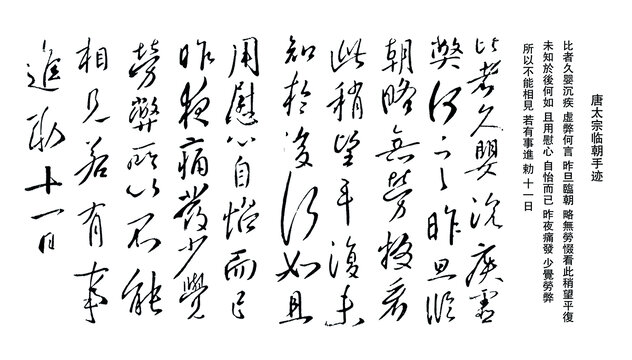 唐太宗临朝手迹
比者久嬰沉疾 虛弊何言 昨旦臨朝 略無勞惙看此稍望平復
未知於後何如 且用慰心 自怡而已 昨夜痛發 少覺勞弊
所以不能相見 若有事進 勅 十一日
比者久嬰沉疾虛
弊何言昨旦臨
朝略無勞惙看
此稍望平復未
知於後何如且
用慰心自怡而已
昨夜痛發少覺
勞弊所以不能
相見若有事
進勅十一日